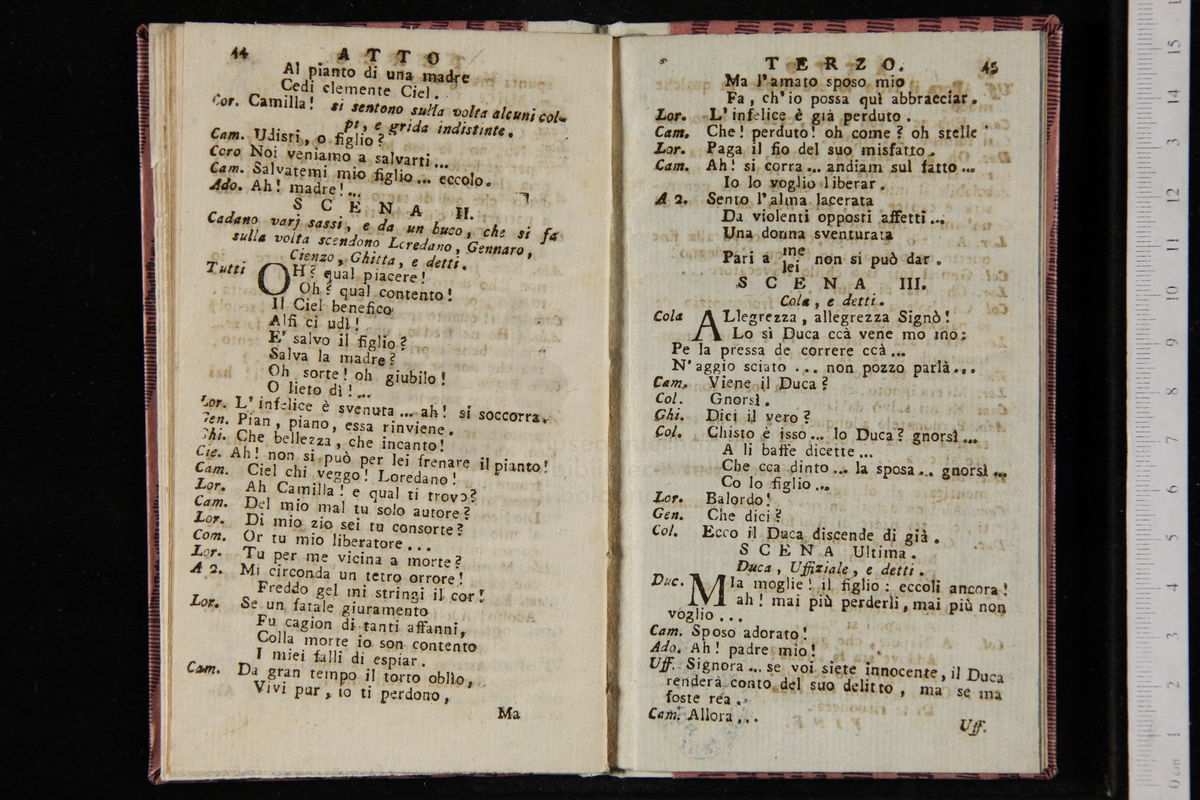 44 ATTO
Al pianto di una madre
Cedi clemente Ciel.
Cor. Camilla! si sentono sulla volta alcuni col-
pi, e grida indistinte.
Cam. Udisti, o figlio?
Coro Noi veniamo a salvarti...
Cam. Salvatemi mio figlio... eccolo.
Ado. Ah! madre!...
SCENA II.
Cadano varj sassi, e da un buco, che si fa
sulla volta scendono Loredano, Gennaro,
Cienzo, Ghitta, e detti.
Tutti OH? qual piacere!
Oh? qual contento!
Il Ciel benefico
Alfi ci udì!
E' salvo il figlio?
Salva la madre?
Oh sorte! oh giubilo!
O lieto dì!...
Lor. L'infelice è svenuta... ah! si soccorra.
Gen. Pian, piano, essa rinviene.
Ghi. Che bellezza, che incanto!
Cie. Ah! non si può per lei frenare il pianto!
Cam. Ciel chi veggo! Loredano!
Lor. Ah Camilla! e qual ti trovo?
Cam. Del mio mal tu solo autore?
Lor. Di mio zio sei tu consorte?
Com. Or tu mio liberatore...
Lor. Tu per me vicina a morte?
A 2. Mi circonda un tetro orrore!
Freddo gel mi stringi il cor!
Lor. Se un fatale giuramento
Fu cagion di tanti affanni,
Colla morte io son contento
I miei falli di espiar.
Cam. Da gran tempo il torto oblìo,
Vivi pur, io ti perdono,
Ma
TERZO. 45
Ma l'amato sposo mio
Fa, ch'io possa quì abbracciar.
Lor. L'infelice è già perduto.
Cam. Che! perduto! oh come? oh stelle
Lor. Paga il fio del suo misfatto.
Cam. Ah! si corra... andiam sul fatto...
Io lo voglio liberar.
A 2. Sento l'alma lacerata
Da violenti opposti affetti...
Una donna sventurata
Pari a me
lei non si può dar.
SCENA III.
Cola, e detti.
Cola ALlegrezza, allegrezza Signò!
Lo sì Duca ccà vene mo mo:
Pe la pressa de correre ccà...
N'aggio sciato ... non pozzo parlà...
Cam. Viene il Duca?
Col. Gnorsì.
Ghi. Dici il vero?
Col. Chisto è isso... lo Duca? gnorsì...
A li baffe dicette...
Che cca dinto... la sposa... gnorsì...
Co lo figlio...
Lor. Balordo!
Gen. Che dici?
Col. Ecco il Duca discende di già.
SCENA Ultima.
Duca, Uffiziale, e detti.
Duc. MIa moglie! il figlio: eccoli ancora!
ah! mai più perderli, mai più non
voglio...
Cam. Sposo adorato!
Ado. Ah! padre mio!
Uff. Signora... se voi siete innocente, il Duca
renderà conto del suo delitto, ma se ma
foste rea.
Cam. Allora...
Uff.